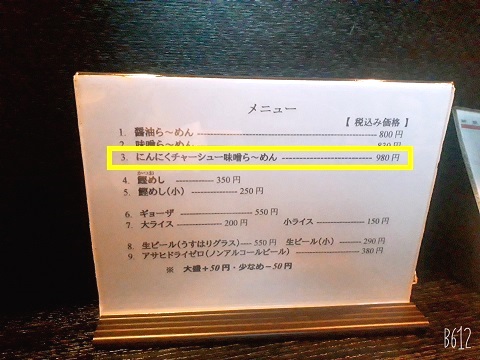 メニュー
【 税込み価格 】
1. 醤油ら～めん ---------------- 800円
2. 味噌ら～めん
3. にんにくチャーシュー味噌ら～めん ---------------- 980円
かつお
4. 鰹めし ---------- 350円
5. 鰹めし(小) -------- 250円
6. ギョーザ ---------- 550円
7. 大ライス ---------- 200円 小ライス ---------- 150円
8. 生ビール(うすはりグラス)---- 550円 生ビール(小) ------ 290円
9. アサヒドライゼロ(ノンアルコールビール) ---------- 380円
※ 大盛+50円・少なめ-50円
B612